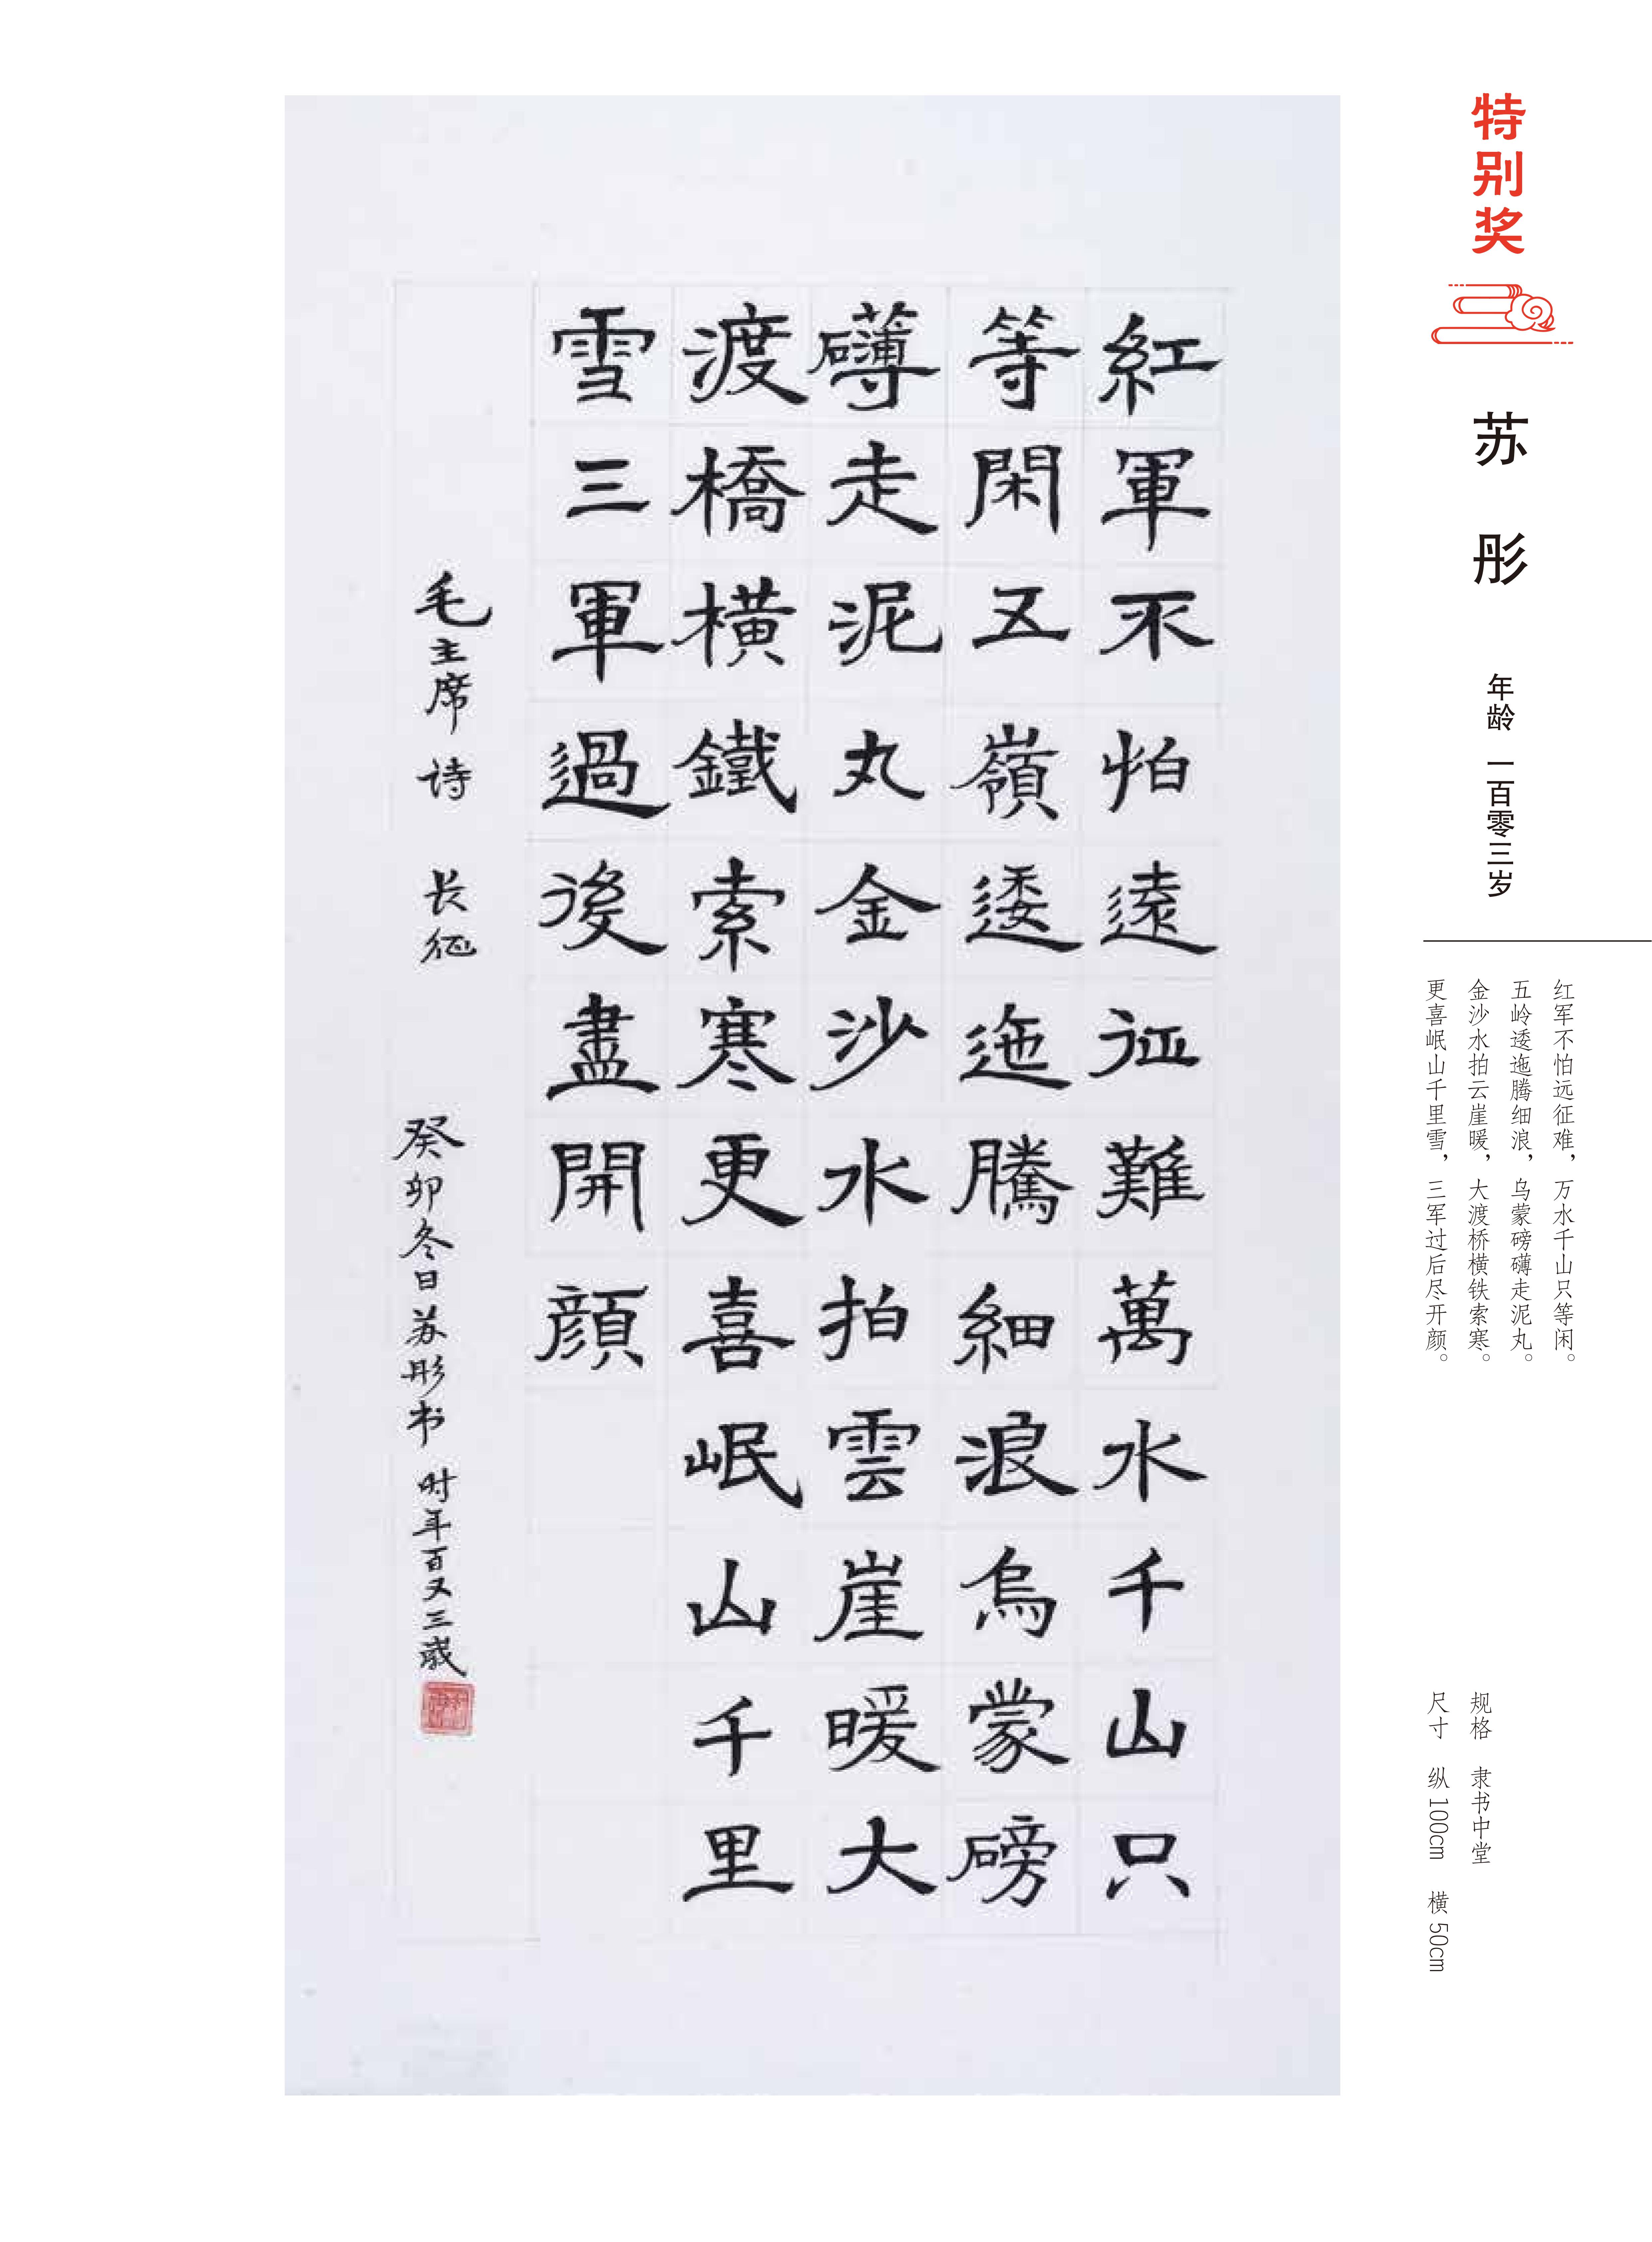 特别奖
苏彤
年龄 一百零三岁
红军不怕远征难，万水千山只等闲。
五岭逶迤腾细浪，乌蒙磅礴走泥丸。
金沙水拍云崖暖，大渡桥横铁索寒。
更喜岷山千里雪，三军过后尽开颜。
规格 隶书中堂
尺寸 纵 100cm 横 50cm
紅軍不怕遠征難萬水千山只
等閑五嶺逶迤騰細浪烏蒙磅
礴走泥丸金沙水拍雲崖暖大
渡橋橫鐵索寒更喜岷山千里
雪三軍過後盡開顏
毛主席诗 长征 癸卯冬日苏彤书 时年百又三歲